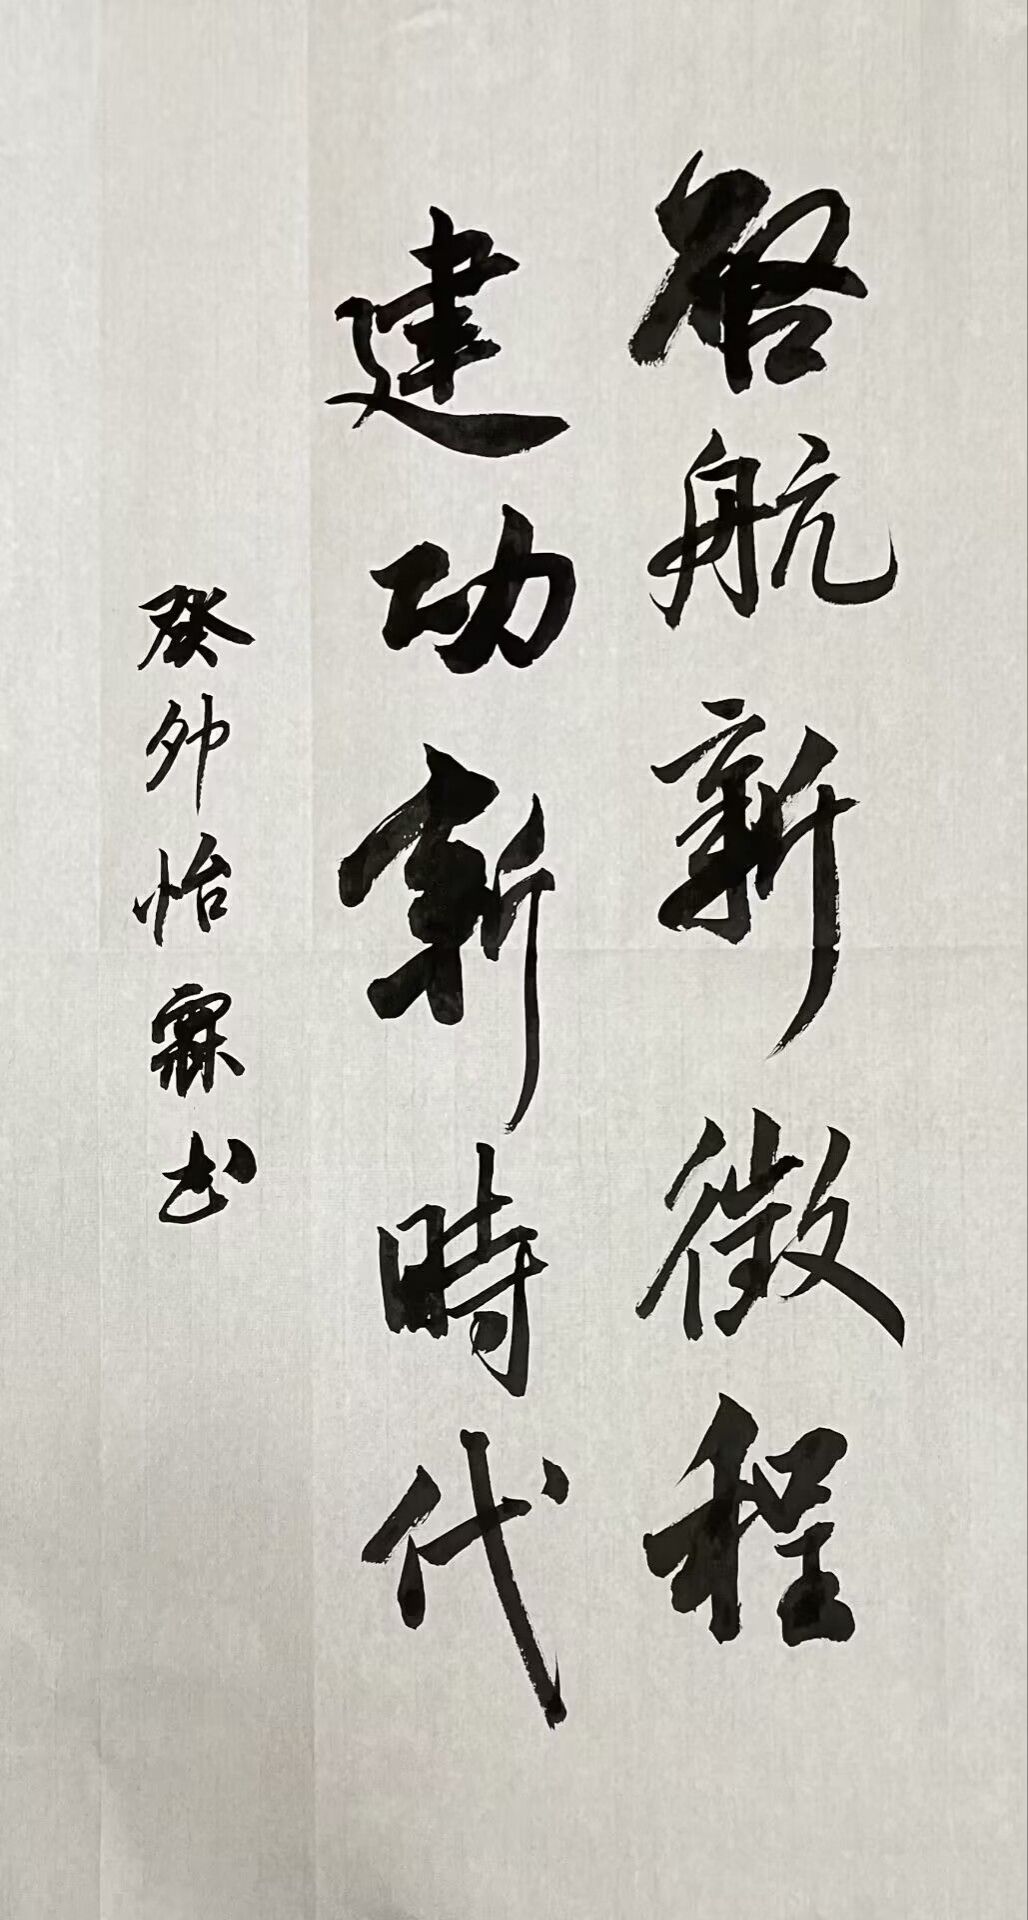 啓航新徵程
建功新時代
癸卯怡霖书